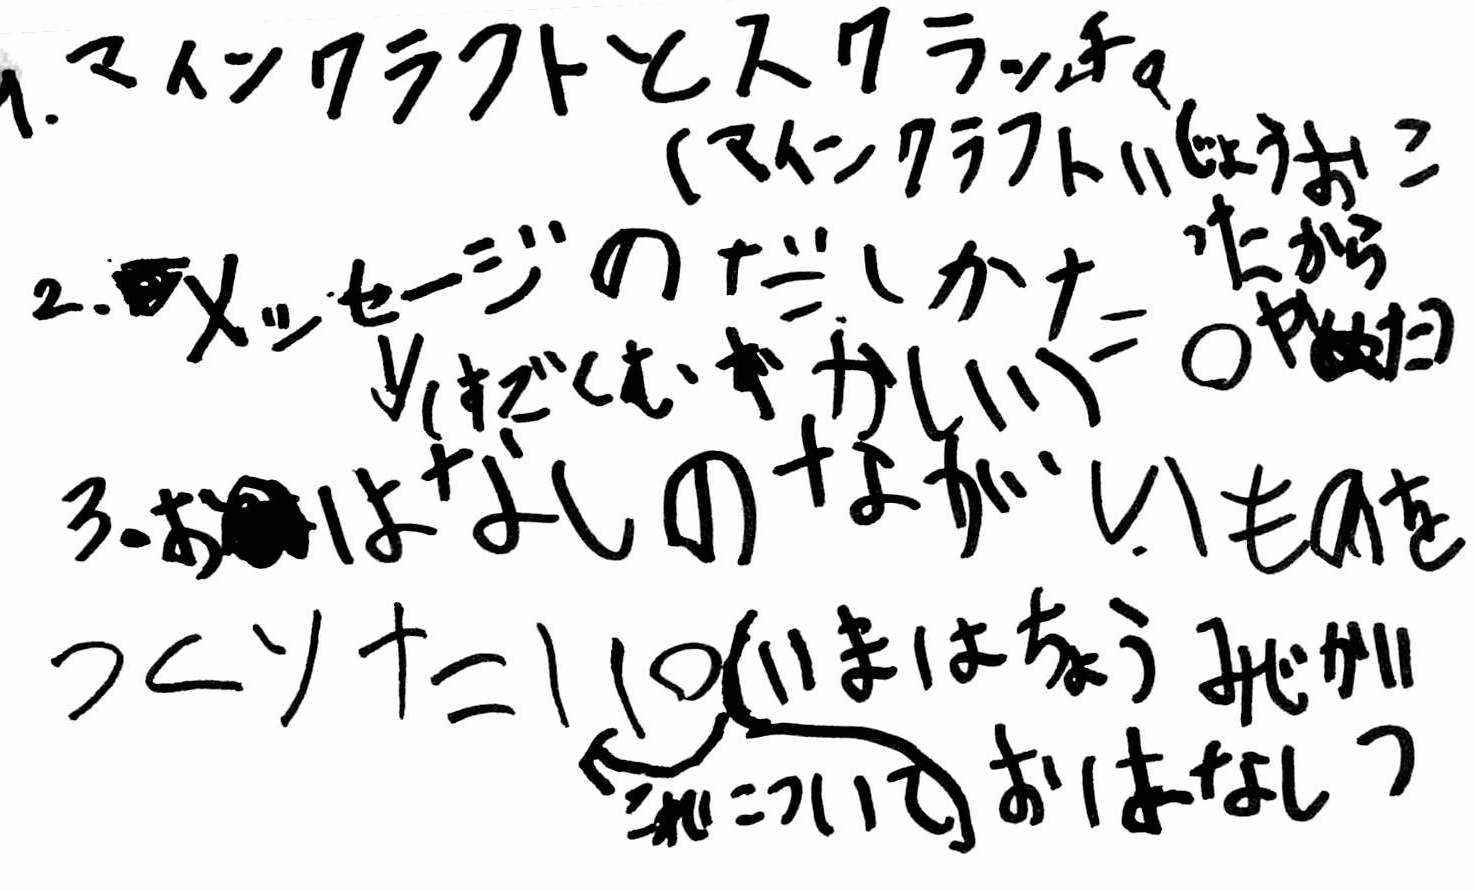 1.マインクラフトとスクラッチ。
(マインクラフトいじょうおこ
ったから
やめた)
2.メッセージのだしかた。
(すごくむずかしい)
3.おはなしのながいものを
つくりたい。(いまはちょうみじかい
おはなしつ
これについて)